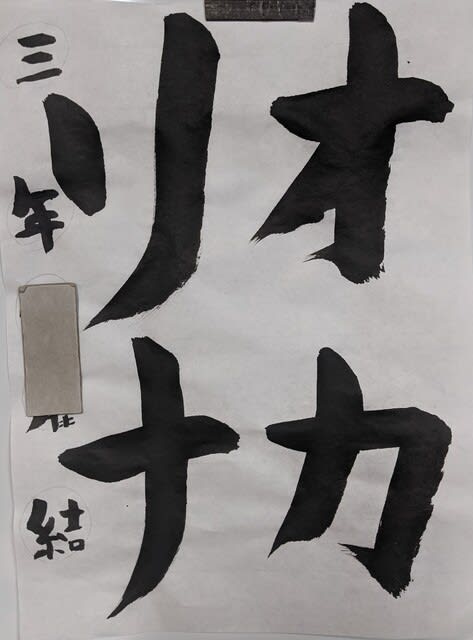 オカ
リナ
三年
結